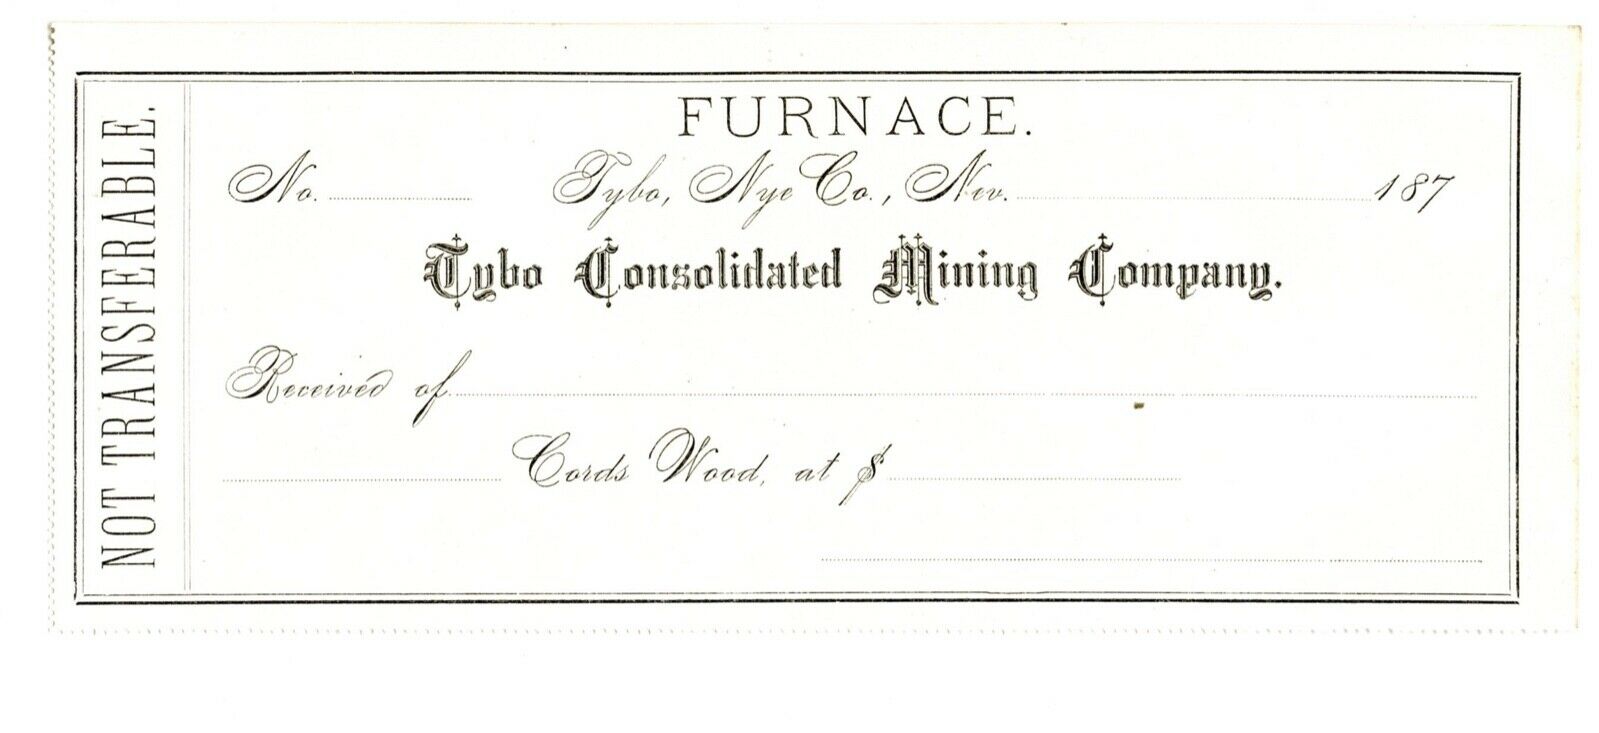 NOT TRANSFERABLE.
FURNACE.
No. Tybo, Nye Co., Nev. 187
Tybo Consolidated Mining Company.
Received of
Cords Wood, at $